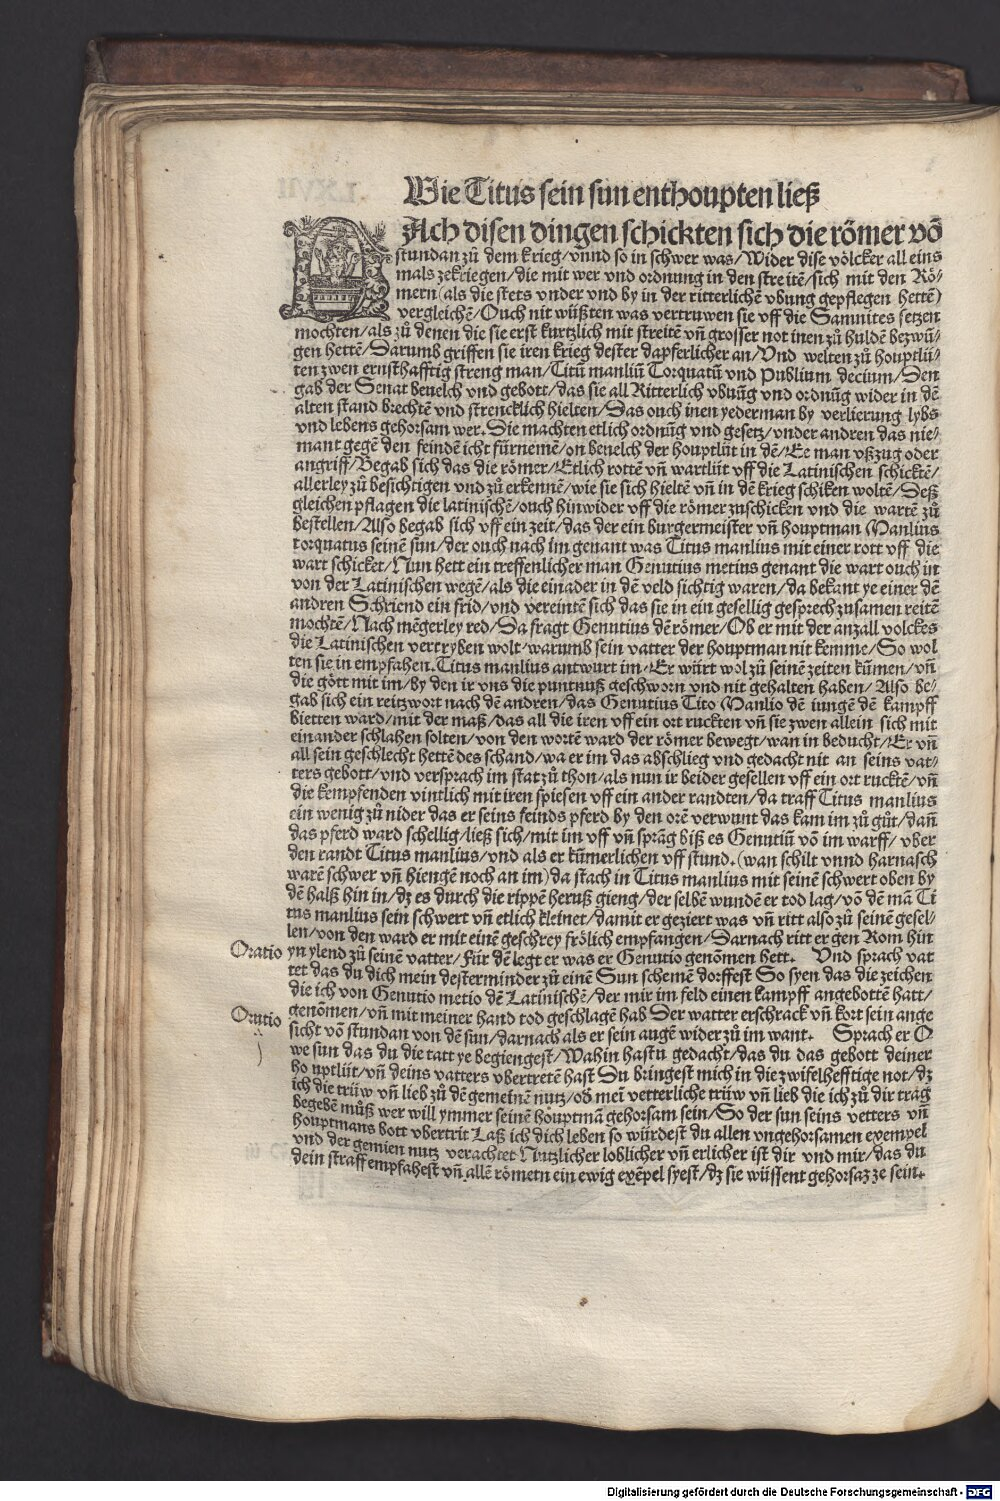 Wie Titus sein sun enthoupten ließ
NAch disen dingen schickten sich die römer võ
stundan zů dem krieg/vnnd so in schwer was/Wider dise völcker all eins
mals zekriegen/die mit wer vnd ordnung in den streitẽ/sich mit den Rö/
mern (als die stets vnder vnd by in der ritterlichẽ vbung gepflegen hettẽ)
vergleichẽ/Ouch nit wüßten was vertruwen sie vff die Samnites setzen
mochten/als zů denen die sie erst kurtzlich mit streitẽ vñ grosser not inen zů huldẽ bezwũ/
gen hettẽ/Darumb griffen sie iren krieg dester dapferlicher an/Vnd welten zů houptlü/
ten zwen ernsthafftig streng man/Titũ manliũ Torquatũ vnd Publium decium/Den
gab der Senat beuelch vnd gebott/das sie all Ritterlich vbũng vnd ordnũg wider in dẽ
alten stand brechtẽ vnd strencklich hielten/Das ouch inen yederman by verlierung lybs
vnd lebens gehorsam wer. Die machten etlich ordnũg vnd gesetz/vnder andren das nie/
mant gegẽ den feindẽ icht fürnemẽ/on beuelch der houptlüt in dẽ/Ee man vßzug oder
angriff/Begab sich das die römer/Etlich rottẽ vñ wartlüt vff die Latinischen schicktẽ/
allerley zů besichtigen vnd zů erkennẽ/wie sie sich hieltẽ vñ in dẽ krieg schiken woltẽ/Deß
gleichen pflagen die latinischẽ/ouch hinwider vff die römer zuschicken vnd die wartẽ zů
bestellen/Also begab sich vff ein zeit/das der ein burgermeister vñ houptman Manlius
torquatus seinẽ sun/der ouch nach im genant was Titus manlius mit einer rott vff die
wart schicket/Nun hett ein treffenlicher man Genutius metius genant die wart ouch in
von der Latinischen wegẽ/als die einader in dẽ veld sichtig waren/da bekant ye einer dẽ
andren Schriend ein frid/vnd vereintẽ sich das sie in ein gesellig gesprech zusamen reitẽ
mochtẽ/Nach mẽgerley red/Da fragt Genutius dẽ römer/Ob er mit der anzall volckes
die Latinischen vertryben wolt/warumb sein vatter der houptman nit kemme/So wol
ten sie in empfahen. Titus manlius antwurt im/Er würt wol zů seinẽ zeiten kũmen/vñ
die gött mit im/by den ir vns die puntnuß geschworn vnd nit gehalten haben/Also be/
gab sich ein reitzwort nach dẽ andren/das Genutius Tito Manlio dẽ iungẽ dẽ kampff
bietten ward/mit der maß/das all die iren vff ein ort ruckten vñ sie zwen allein sich mit
einander schlahen solten/von den wortẽ ward der römer bewegt/wan in beducht/Er vñ
all sein geschlecht hettẽ des schand/wa er im das abschlieg vnd gedacht nit an seins vat/
ters gebott/vnd versprach im stat zů thon/als nun ir beider gesellen vff ein ort rucktẽ/vñ
die kempfenden vintlich mit iren spiesen vff ein ander randten/da traff Titus manlius
ein wenig zů nider das er seins feinds pferd by den orẽ verwunt das kam im zů gůt/dañ
das pferd ward schellig/ließ sich/mit im vff vñ sprãg biß es Genutiũ võ im warff/vber
den randt Titus manlius/vnd als er kũmerlichen vff stund.(wan schilt vnnd harnasch
warẽ schwer vñ hiengẽ noch an im) da stach in Titus manlius mit seinẽ schwert oben by
dẽ halß hin in/dz es durch die rippẽ heruß gieng/der selbẽ wundẽ er tod lag/võ dẽ mã Ti
tus manlius sein schwert vñ etlich kleinet/damit er geziert was vñ ritt also zů seinẽ gesel/
len/von den ward er mit einẽ geschrey frölich empfangen/Darnach ritt er gen Rom hin
Oratio yn ylend zů seinẽ vatter/Für dẽ legt er was er Genutio genõmen hett. Vnd sprach vat
tet das du dich mein desterminder zů einẽ Sun schemẽ dorffest So syen das die zeichen
die ich von Genutio metio dẽ Latinischẽ/der mir im feld einen kampff angebottẽ hatt/
Oratio genõmen/vñ mit meiner hand tod geschlagẽ hab Der watter erschrack vñ kort sein ange
sicht võ stundan von dẽ sun/darnach als er sein augẽ wider zů im want. Sprach er O
we sun das du die tatt ye begiengest/Wahin hastu gedacht/das du das gebott deiner
houptlüt/vñ deins vatters vbertretẽ hast Du bringest mich in die zwifelhefftige not/dz
ich die trüw vñ lieb zů dẽ gemeinẽ nutz/ob meĩ vetterliche trüw vñ lieb die ich zů dir trag
begebẽ můß wer will ymmer seinẽ houptmã gehorsam sein/So der sun seins vetters vñ
houptmans bott vbertrit Laß ich dich leben so würdest du allen vngehorsamen exempel
vnd der gemien nutz verachtet Nutzlicher loblicher vñ erlicher ist dir vnd mir/das du
dein straff empfahest vñ allẽ römern ein ewig exẽpel syest/dz sie wüssent gehorsaz ze sein.
Digitalisierung gefördert durch die Deutsche Forschungsgemeinschaft - DFG